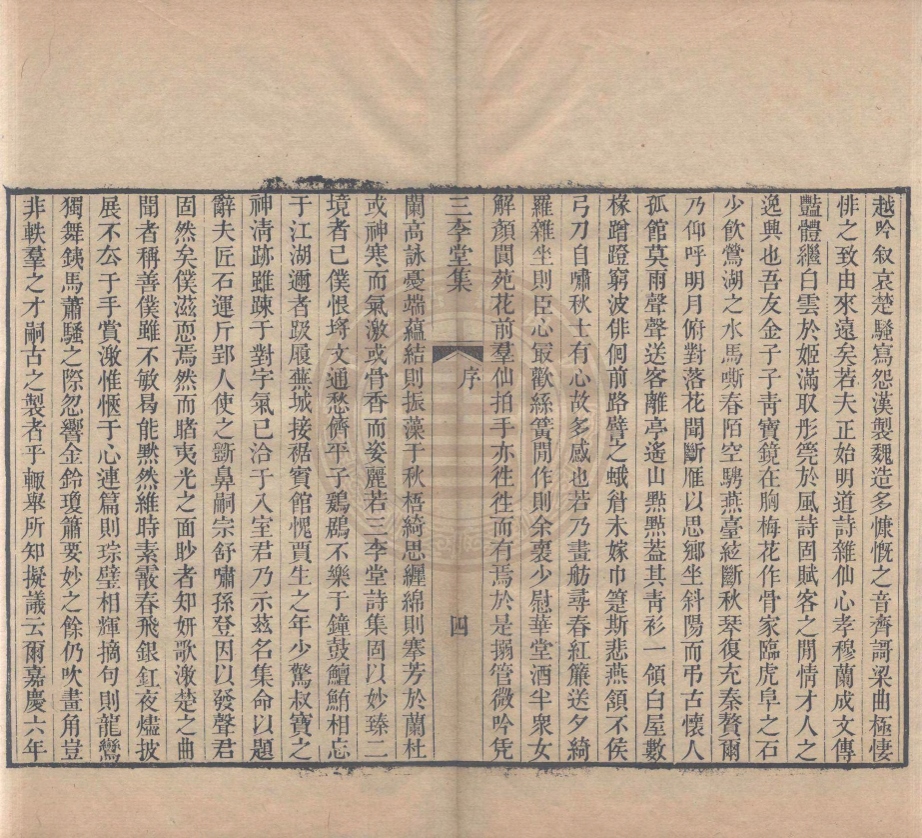 越吟叙哀楚騷寫怨漢製魏造多慷慨之音齊謌梁曲極悽
悱之致由來遠矣若夫正始明道詩雜仙心孝穆蘭成文傳
豔體繼白雲於姬滿取彤筦於風詩固賦客之閒情才人之
逸興也吾友金子子靑寶鏡在胸梅花作骨家臨虎阜之石
少飲鶯湖之水馬嘶春陌空騁燕臺絃斷秋琴復充秦贅爾
乃仰呼明月俯對落花聞斷雁以思鄉坐斜陽而弔古懷人
孤館莫雨聲聲送客離亭遙山㸃㸃蓋其靑衫一領白屋數
椽蹭蹬窮波俳佪前路譬之蛾眉未嫁巾篋斯悲燕頷不侯
弓刀自嘯秋士有心故多感也若乃畫舫尋春紅簾送夕綺
羅雜坐則臣心最歡絲簧閒作則余褱少慰華堂酒半衆女
解顏閬苑花前羣仙拍手亦徃徃而有焉於是搦管微吟凭
三李堂集
序
四
闌高詠憂端蘊結則振藻于秋梧綺思纏綿則搴芳於蘭杜
或神寒而氣激或骨香而姿麗若三李堂詩集固以妙臻二
境者已僕恨埒文通愁儕平子鷄鶋不樂于鐘鼓鱣鮪相忘
于江湖邇者趿履蕪城接裾賓館愧賈生之年少驚叔寶之
神淸跡雖疎于對宇氣已洽于入室君乃示茲名集命以題
辭夫匠石運斤郢人使之斲鼻嗣宗舒嘯孫登因以發聲君
固然矣僕滋恧焉然而睹夷光之面眇者知妍歌激楚之曲
聞者稱善僕雖不敏曷能黙然維時素霰春飛銀釭夜燼披
展不厺于手賞激惟愜于心連篇則琮璧相輝摘句則龍鸞
獨舞銕馬蕭騷之際忽響金鈴瓊簫要妙之餘仍吹畫角豈
非軼羣之才嗣古之製者乎輙舉所知擬議云爾嘉慶六年